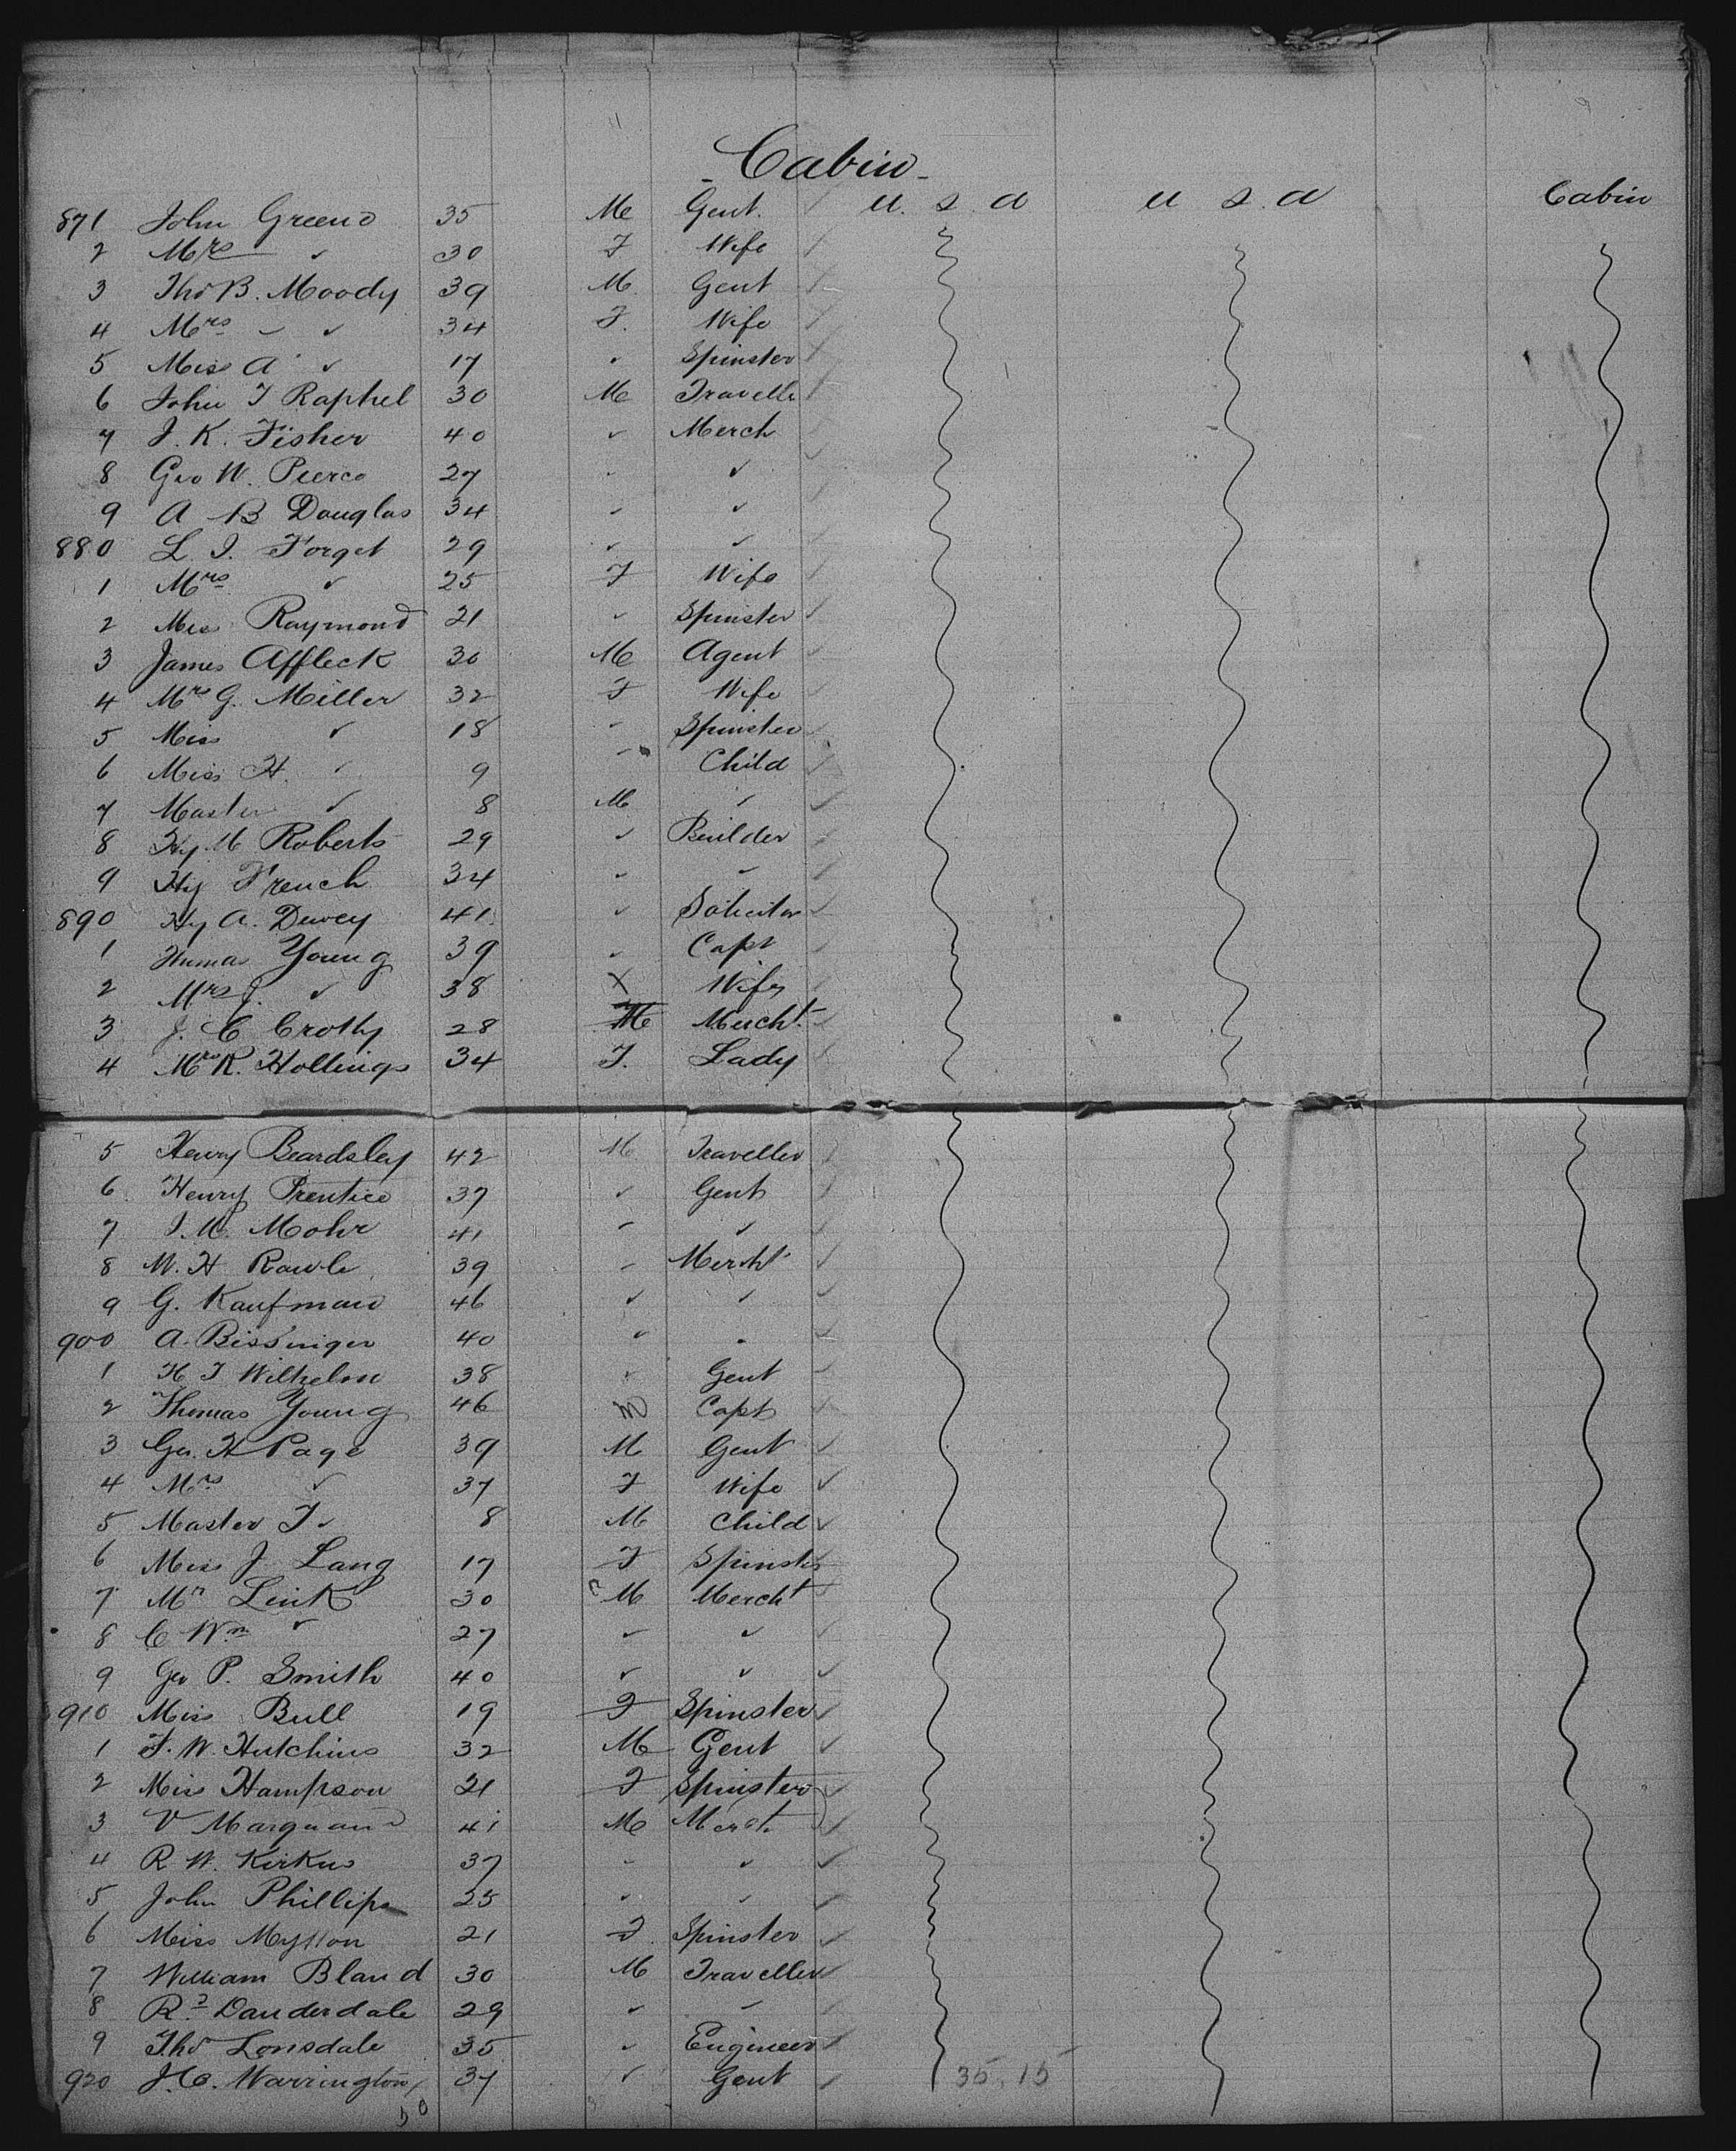 Cabin
871 John Greend 35 M Gent. ✓ U. S. A U S. A Cabin
2 Mrs ✓ 30 F Wife ✓
3 Thos B. Moody 39 M Gent ✓
4 Mrs - ✓ 34 F. Wife ✓
5 Miss A ✓ 17 ✓ Spinster ✓
6 John T Raphel 30 M Travelle ✓
7 J. K. Fisher 40 ✓ Merch ✓
8 Geo W. Pierce 27 ✓ ✓ ✓
9 A B Douglas 34 ✓ ✓ ✓
880 L. J. Forget 29 ✓ ✓ ✓
1 Mrs ✓ 25 F Wife ✓
2 Miss Raymond 21 ✓ Spinster ✓
3 James Affleck 30 M Agent ✓
4 Mrs G. Miller 32 F Wife ✓
5 Miss ✓ 18 ✓ Spinster ✓
6 Miss H. ✓ 9 ✓ Child ✓
7 Master ✓ 8 M ✓ ✓
8 Hy M Roberts 29 ✓ Builder ✓
9 Hy French 34 ✓ ✓ ✓
890 Hy A. Dewey 41 ✓ Solicitor ✓
1 Thomas Young 39 ✓ Capt ✓
2 Mrs J. ✓ 38 X Wife ✓
3 J. C Crotty 28 M Mercht. ✓
4 Mrs R. Hollings 34 F. Lady ✓
5 Henry Beardsley 42 M. Traveller ✓
6 Henry Prentice 37 ✓ Gent ✓
7 J. M. Mohr 41 ✓ ✓ ✓
8 W. H Rawle 39 ✓ Mercht ✓
9 G. Kaufman 46 ✓ ✓ ✓
900 A. Bissinger 40 ✓ ✓ ✓
1 H J Wilhelm 38 ✓ Gent ✓
2 Thomas Young 46 M Capt ✓
3 Geo. H Page 39 M Gent ✓
4 Mrs ✓ 37 F Wife ✓
5 Master J ✓ 8 M Child ✓
6 Miss J Lang 17 F Spinster ✓
7 Mr Link 30 M Mercht ✓
8 C Wm ✓ 27 ✓ ✓ ✓
9 Geo P. Smith 40 ✓ ✓ ✓
910 Miss Bull 19 F Spinster ✓
1 F. W. Hutchins 32 M Gent ✓
2 Miss Hampson 21 F Spinster ✓
3 V Marquand 41 M Merch ✓
4 R W. Kirkus 37 ✓ ✓ ✓
5 John Phillips 25 ✓ ✓ ✓
6 Miss Mytton 21 F. Spinster ✓
7 William Bland 30 M Traveller ✓
8 Rd Dauderdale 29 ✓ ✓ ✓
9 Thos Lonsdale 35 ✓ Engineer ✓
920 J. C. Warrington 37 ✓ Gent ✓ 35.15
50